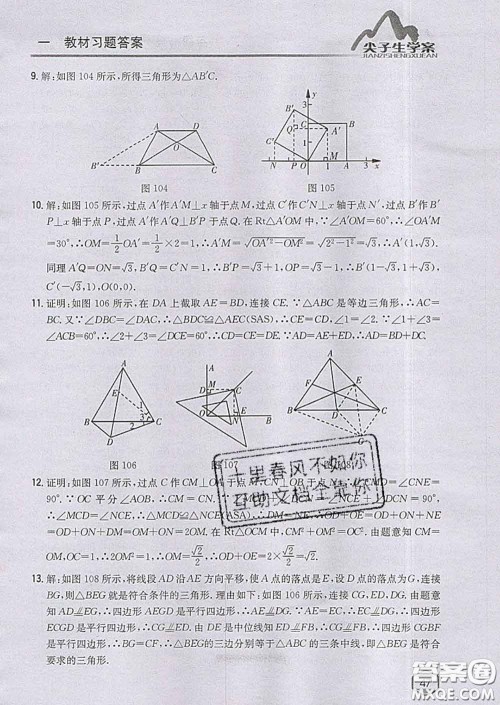 一 教材习题答案
尖子生学案
JIANZISHENGXUEAN
9. 解:如图 104 所示,所得三角形为△AB′C.
图 104
图 105
10. 解:如图 105 所示,过点 A′作 A′M⊥x 轴于点 M,过点 C′作 C′N⊥x 轴于点 N,过点 B′作 B′
P⊥x 轴于点 P,过点 A′作 A′Q⊥B′P 于点 Q. 在 Rt△A′OM 中,∵∠A′OM=60°,∴∠OA′M
=30°,∴OM=1/2 OA′=1/2×2=1,∴A′M=√(OA′²−OM²)=√(2²−1²)=√3,∴A′(1,√3).
同理 A′Q=ON=√3,B′Q=C′N=1,∴B′P=√3+1,OP=√3-1,∴B′(1-√3,1+√3),
C′(-√3,1),O(0,0).
11. 证明:如图 106 所示,在 DA 上截取 AE=BD,连接 CE. ∵△ABC 是等边三角形,∴AC=
BC. 又∵∠DBC=∠DAC,∴△BDC≌△AEC(SAS),∴CD=CE,∠1=∠2. ∵∠1+∠3=
∠ACB=60°,∴∠2+∠3=∠DCE=60°,∴CD=CE=DE. ∵AD=AE+ED,∴AD=BD+CD.
图 106
图 107
12. 证明:如图 107 所示,过点 C 作 CM⊥OA 于点
90°. ∵OC 平分∠AOB,∴CM=CN.
∴∠MCD=∠NCE,∴△MCD≌△NCE(ASA),∴DM=EN,∴OD+OE=OD+ON+NE
=OD+ON+DM=OM+ON=2OM. 在 Rt△OCM 中,CM²+OM²=OC²,由题意知 CM=
OM,OC=1,∴2OM²=1,∴OM=√2/2,∴OD+OE=2×√2/2=√2.
13. 解:如图 108 所示,将线段 AD 沿 AE 方向平移,使 A 点的落点是 E,设 D 点的落点为 G,连接
BG,则△BEG 就是符合条件的三角形. 理由如下:如图 106 所示,连接 CG,ED,GD. 由题意
的四边形 ADGE 是平行四边形
ECGD 是平行四边形,∴CG=DE. 由 DE 是中位线知
是平行四边形,∴BG=CF,∴△BEG 的三边分别等于△ABC 的三条中线,即△BEG 是符合
要求的三角形.
十里春风不如你
互助文档全靠你
答案圈
47